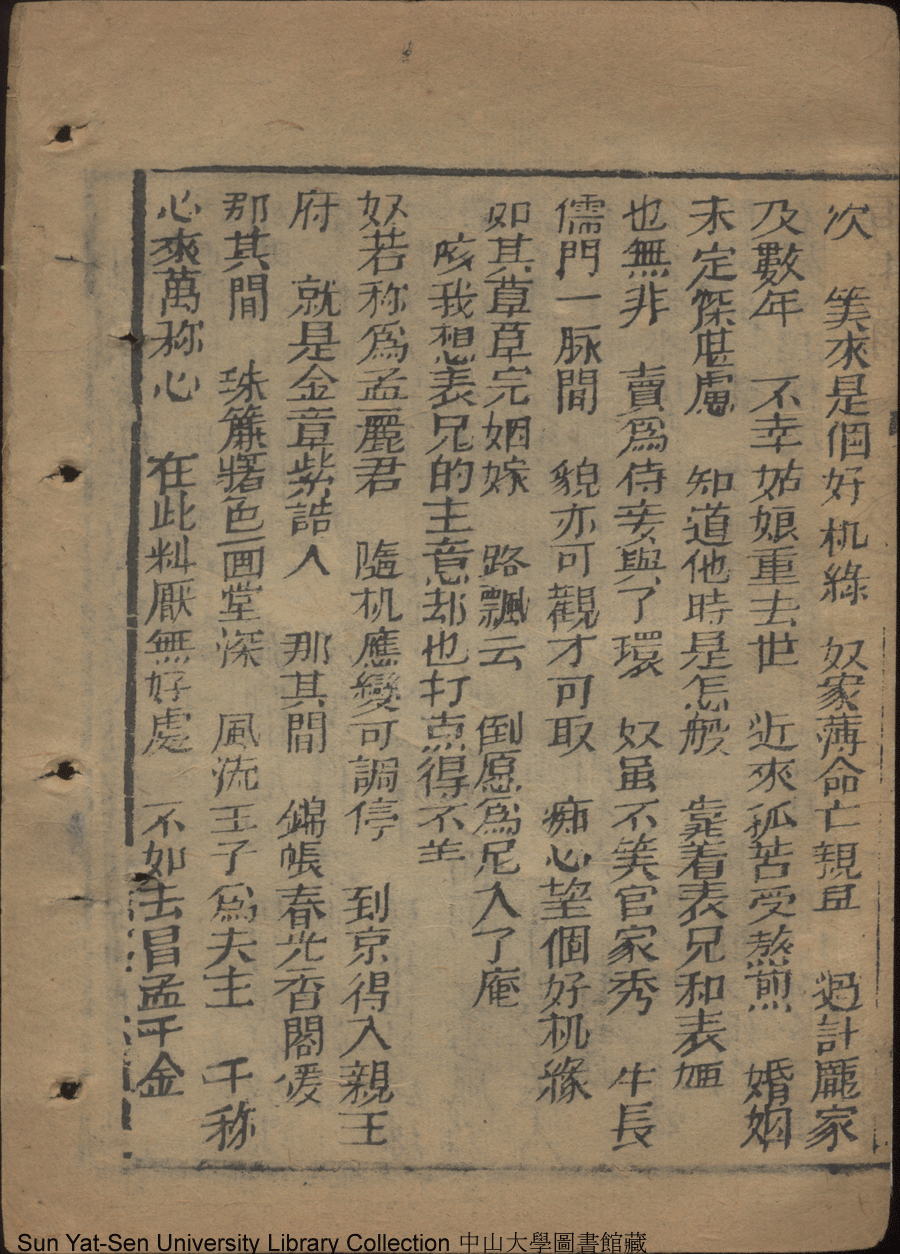 次　笑來是個好机緣　奴家薄命亡親且　過計龐家
及數年　不幸姑娘重去世　近來孤苦受熬煎　婚姻
未定深堪慮　知道他時是怎般　靠着表兄和表
也無非　賣爲侍妾與了環　奴虽不笑官家秀　生長
儒門一脉間　貌亦可觀才可取　痴心望個好机緣
如其草草完姻嫁　路飄云　倒愿爲尼入了庵
咳我想表兄的主意却也打点得不差
奴若称爲孟麗君　隨机應變可調停　到京得入親王
府　就是金章紫誥人　那其間　錦帳春光香閣煖
那其間　珠簾曙色画堂深　風流王子爲夫主　千称
心來萬称心　在此料厭無好處　不如去冒孟千金
Sun Yat-Sen University Library Collection 中山大學圖書館藏